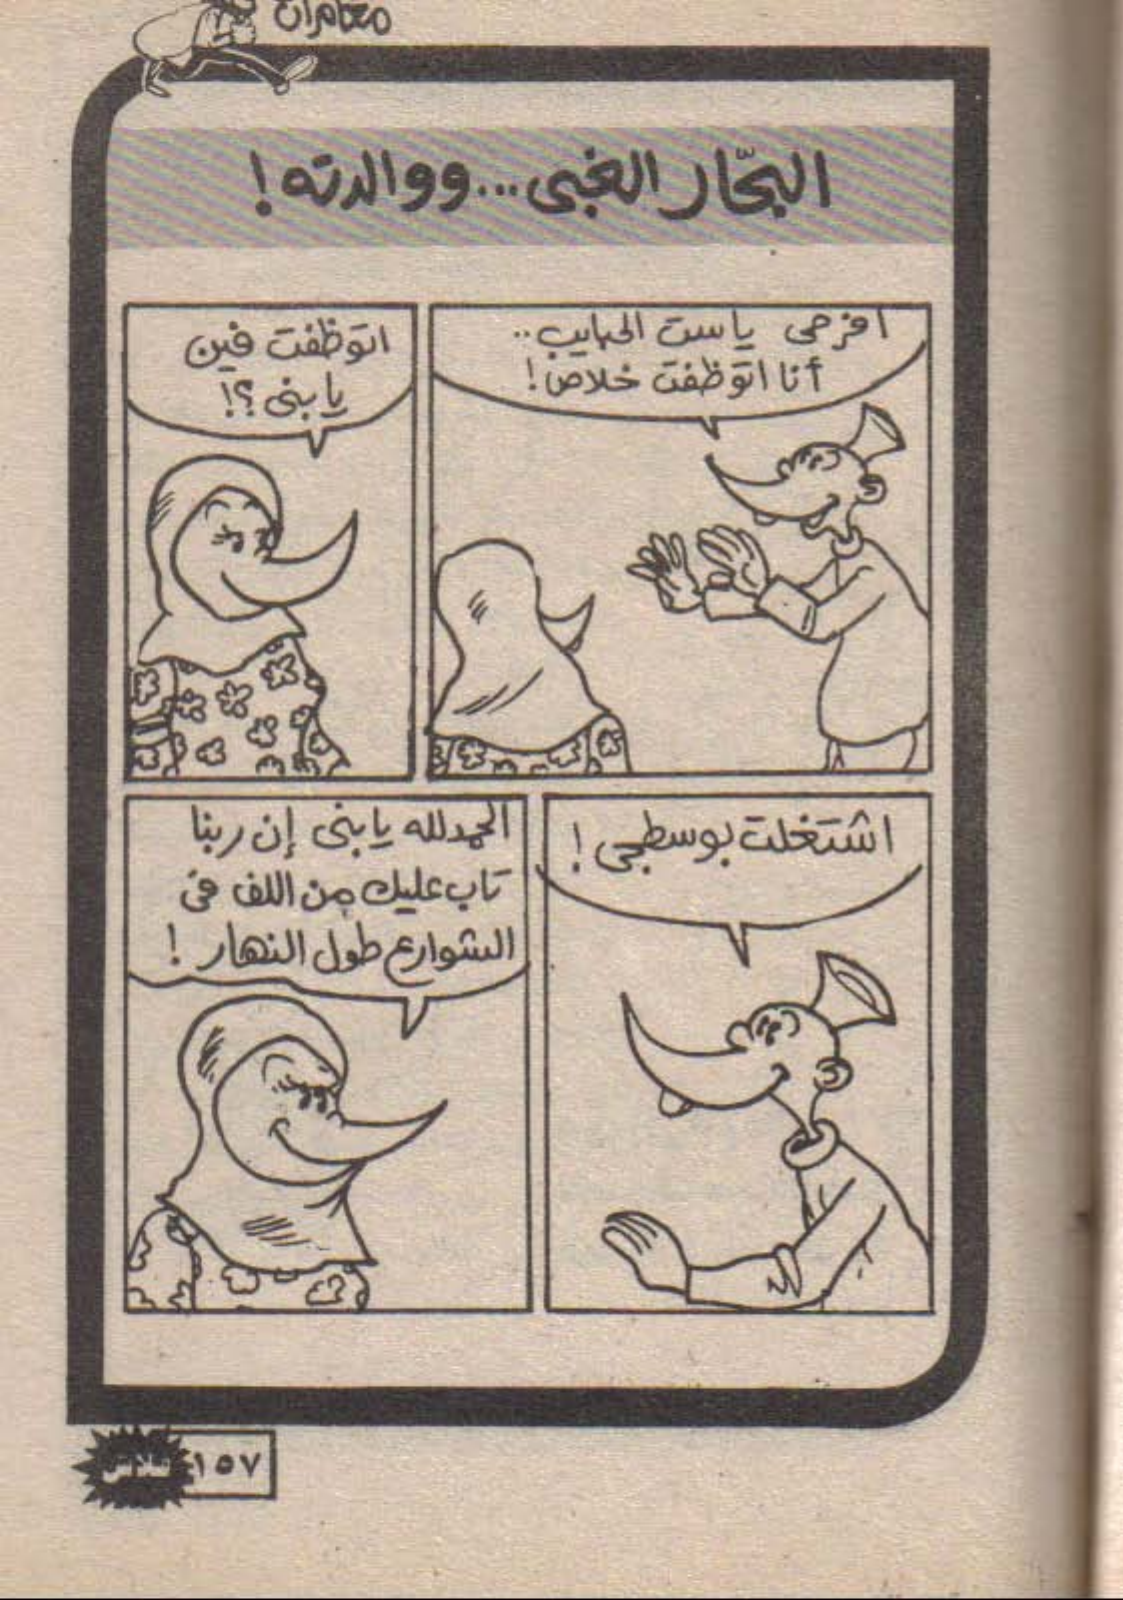 مغامرات
البحّار الغبى...ووالدته!
افرحى ياست الحبايب..
أنا اتوظفت خلاص!
اتوظفت فين
يابنى؟!
اشتغلت بوسطجى!
الحمدلله يابنى إن ربنا
تاب عليك من اللف فى
الشوارع طول النهار!
١٥٧
فلاش